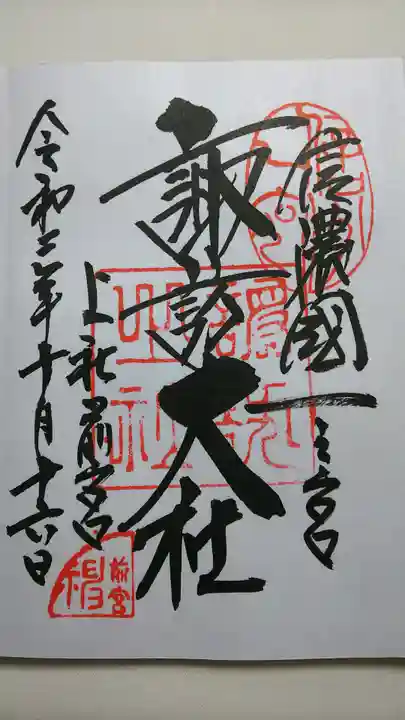 信濃國一之宮
諏訪大社
上社前宮
令和二年十月十六日
前宮